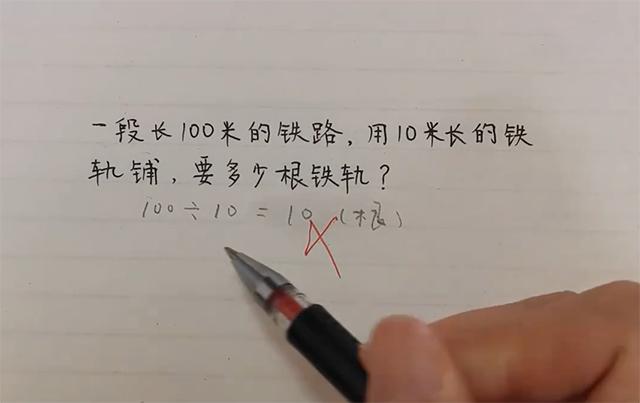 一段长100米的铁路，用10米长的铁
轨铺，要多少根铁轨？
100÷10=10（根）